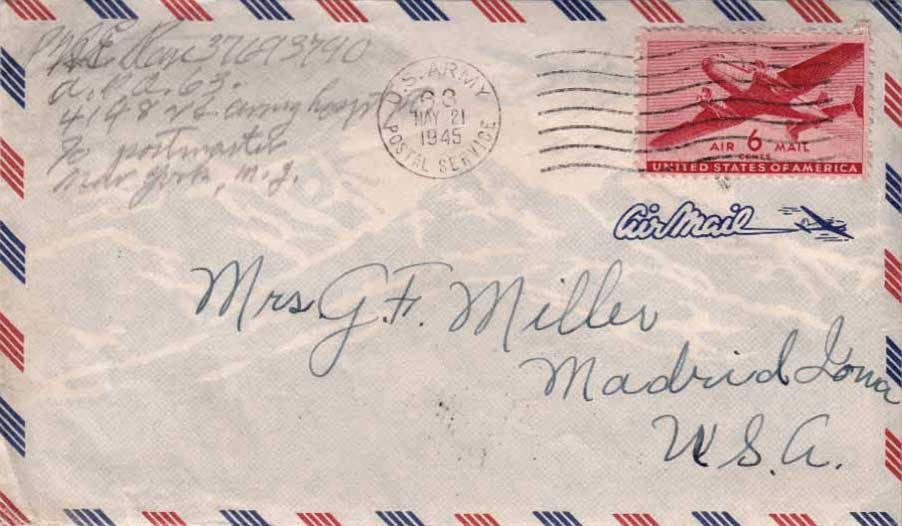 37693790
A.P.O. 63.
4198 U.S. army hospt
% postmaster
New York, N.Y.
U.S. ARMY
POSTAL SERVICE
MAY 21
1945
AIR 6 MAIL
CENTS
UNITED STATES OF AMERICA
Air Mail
Mrs. G. F. Miller
Madrid Iowa
U.S.A.